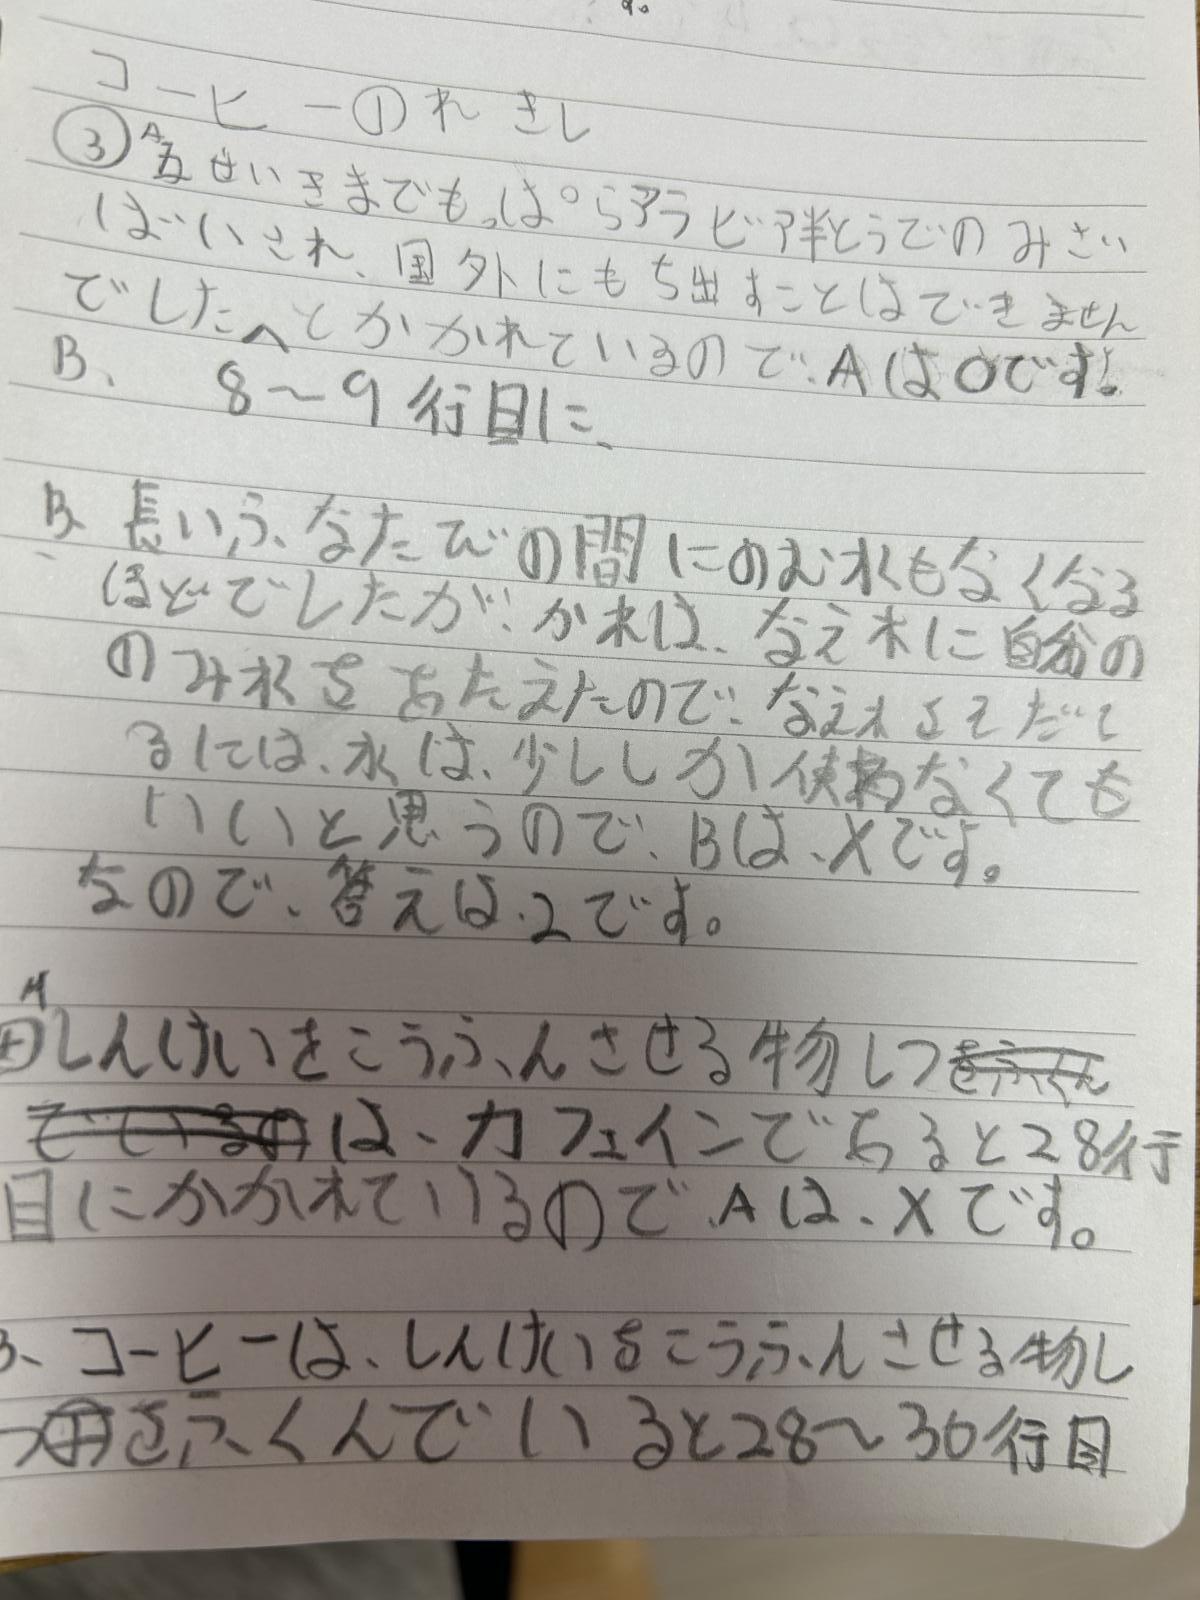 す。
コーヒーのれきし
③A五せいきまでもっぱらアラビア半とうでのみさい
ばいされ、国外にもち出すことはできません
でしたへとかかれているので、Aは〇です。
B、8〜9行目に、
B、長いふなたびの間にのむ水もなくなる
ほどでしたが、かれは、なえ木に自分の
のみ水をあたえたので、なえ木をそだて
るには、水は、少ししか使わなくても
いいと思うので、Bは、×です。
なので、答えは、2です。
④Aしんけいをこうふんさせる物しつをふくん
でいるのは、カフェインであると28行
目にかかれているので、Aは、×です。
B、コーヒーは、しんけいをこうふんさせる物し
つをふくんでいると28〜30行目